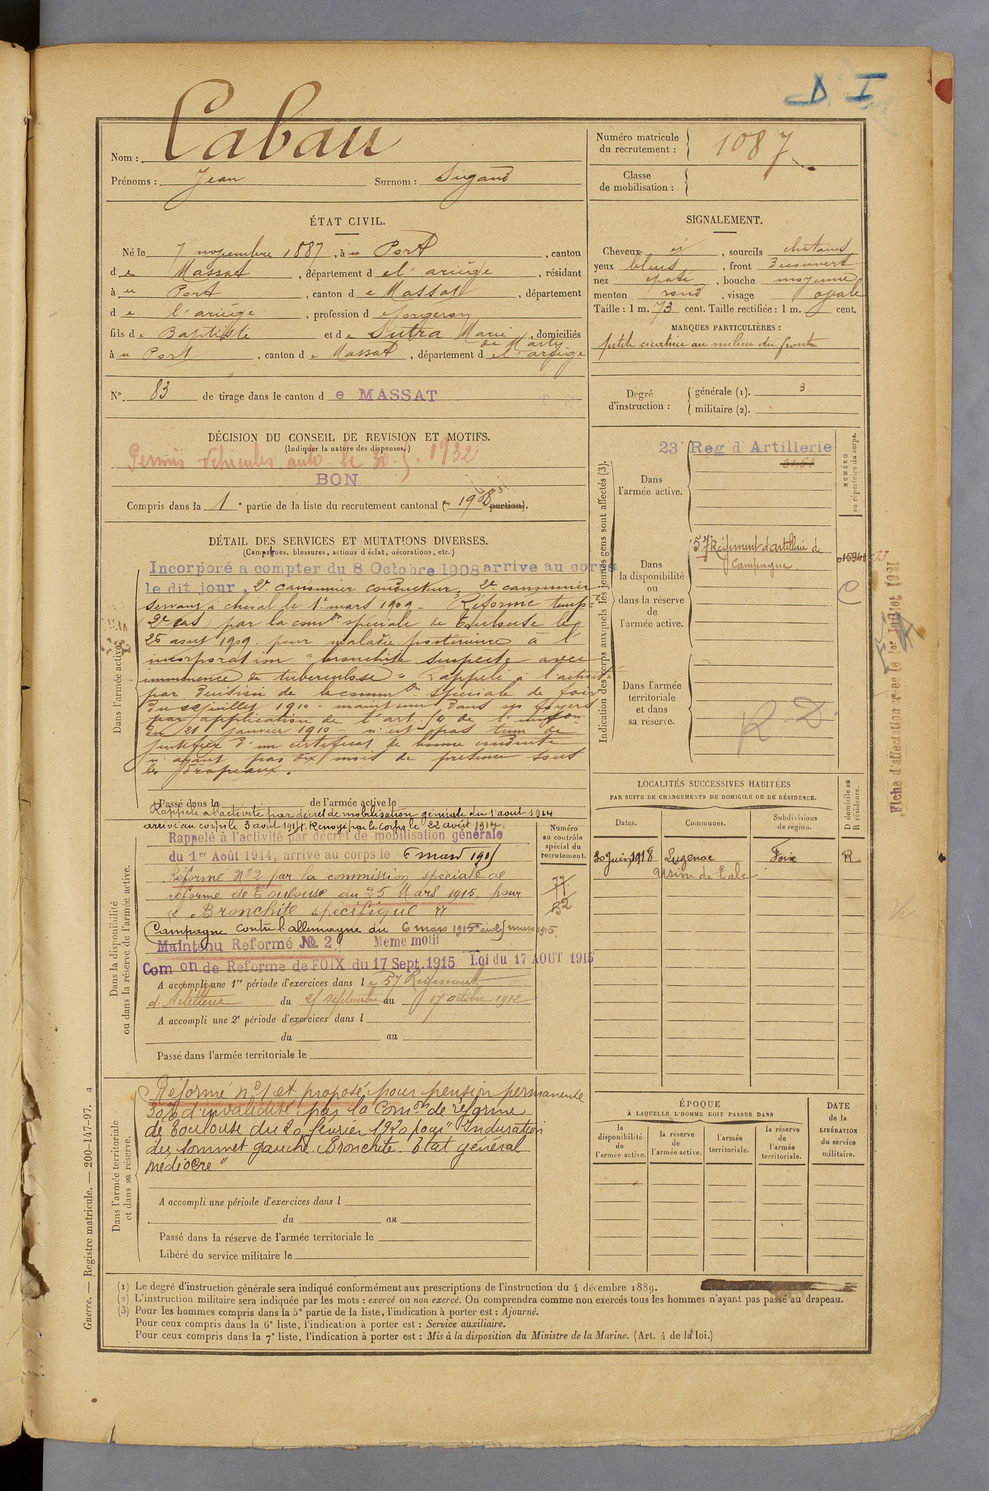 D I
Nom : Cabau
Prénoms : Jean Surnom : Sugand
Numéro matricule du recrutement : 1087
Classe de mobilisation :
ÉTAT CIVIL.
Né le 7 novembre 1887, à u Port, canton
de Massat, département de l'ariège, résidant
à u Port, canton de Massat, département
de l'ariège, profession de forgeron
fils de Baptiste et de Sutra Marie, domiciliés
de Marty
à u Port, canton de Massat, département de l'ariège
N° 83 de tirage dans le canton de MASSAT
SIGNALEMENT.
Cheveux et, sourcils chatains
yeux bleus, front découvert
nez épaté, bouche moyenne
menton rond, visage ovale
Taille : 1 m. 73 cent. Taille rectifiée : 1 m. cent.
MARQUES PARTICULIÈRES :
petite cicatrice au milieu du front
Degré d'instruction : générale (1). 3
militaire (2).
DÉCISION DU CONSEIL DE REVISION ET MOTIFS.
(Indiquer la nature des dispenses.)
Permis Vehicules auto le 30 1932
BON
Compris dans la 1e partie de la liste du recrutement cantonal ( 1908 portion).
DÉTAIL DES SERVICES ET MUTATIONS DIVERSES.
(Campagnes, blessures, actions d'éclat, décorations, etc.)
Dans l'armée active.
Incorporé a compter du 8 Octobre 1908 arrive au corps
le dit jour, 2e canonnier conducteur. 2e canonnier
servant à cheval le 1er mars 1909. Réformé temp
2e cas, par la comon spéciale de Toulouse le
25 aout 1909 pour maladie postérieure à l'
incorporation "bronchite suspecte avec
imminence de tuberculose" Rappelé à l'activité
par décision de la common spéciale de Foix
du juillet 1910 - maintenu dans ses foyers
par application de l'art de l'
du 21 janvier 1910 - n'est pas tenu de
justifier d'un certificat de bonne conduite
n'ayant pas dix mois de présence sous
les drapeaux.
Passé dans la de l'armée active le
Dans la disponibilité ou dans la réserve de l'armée active.
Rappelé à l'activité par décret de mobilisation générale du 1er aout 1914
arrivé au corps le 3 août 1914. Renvoyé par le corps le 22 août 1914.
Rappelé à l'activité par décret de mobilisation générale
du 1er Août 1914, arrive au corps le 6 mars 1915
Réformé N° 2 par la commission spéciale de
réforme de Toulouse du 25 Mars 1915, pour
"Bronchite spécifique"
Campagne contre l'allemagne du 6 mars 1915 au 25 mars 1915.
Maintenu Reformé № 2 Meme motif
Com on de Reforme de FOIX du 17 Sept. 1915 Loi du 17 AOUT 1915
A accompli une 1re période d'exercices dans le 57e Régiment
d'Artillerie du 25 septembre au 17 octobre 1912
A accompli une 2e période d'exercices dans l
du au
Passé dans l'armée territoriale le
Numéro au contrôle spécial du recrutement.
77
52
Dans l'armée territoriale et dans sa réserve.
Réformé n°1 et proposé pour pension permanente
30% d'invalidité par la Comon de réforme
de Toulouse du 20 février 1920 pour "Induration
des sommet gauche. Bronchite. Etat général
médiocre"
A accompli une période d'exercices dans l
du au
Passé dans la réserve de l'armée territoriale le
Libéré du service militaire le
Indication des corps auxquels les jeunes gens sont affectés (3).
Dans l'armée active.
23e Reg d'Artillerie
Dans la disponibilité ou dans la réserve de l'armée active.
57e Régiment d'artillerie de
Campagne
Dans l'armée territoriale et dans sa réserve.
R. D
NUMÉRO au répertoire du corps.
C
Fiche d'affectation créée le 1er Juillet 1921
LOCALITÉS SUCCESSIVES HABITÉES
PAR SUITE DE CHANGEMENTS DE DOMICILE OU DE RÉSIDENCE.
Dates. Communes. Subdivisions de région. D domicile ou R résidence.
20 juin 1918 Luzenac Foix R
Usine de Talc
ÉPOQUE
À LAQUELLE L'HOMME DOIT PASSER DANS
la disponibilité de l'armée active. la réserve de l'armée active. l'armée territoriale. la réserve de l'armée territoriale.
DATE de la LIBÉRATION du service militaire.
(1) Le degré d'instruction générale sera indiqué conformément aux prescriptions de l'instruction du 4 décembre 1889.
(2) L'instruction militaire sera indiquée par les mots : exercé ou non exercé. On comprendra comme non exercés tous les hommes n'ayant pas passé au drapeau.
(3) Pour les hommes compris dans la 5e partie de la liste, l'indication à porter est : Ajourné.
Pour ceux compris dans la 6e liste, l'indication à porter est : Service auxiliaire.
Pour ceux compris dans la 7e liste, l'indication à porter est : Mis à la disposition du Ministre de la Marine. (Art. 4 de la loi.)
Guerre. — Registre matricule. — 200-147-97.